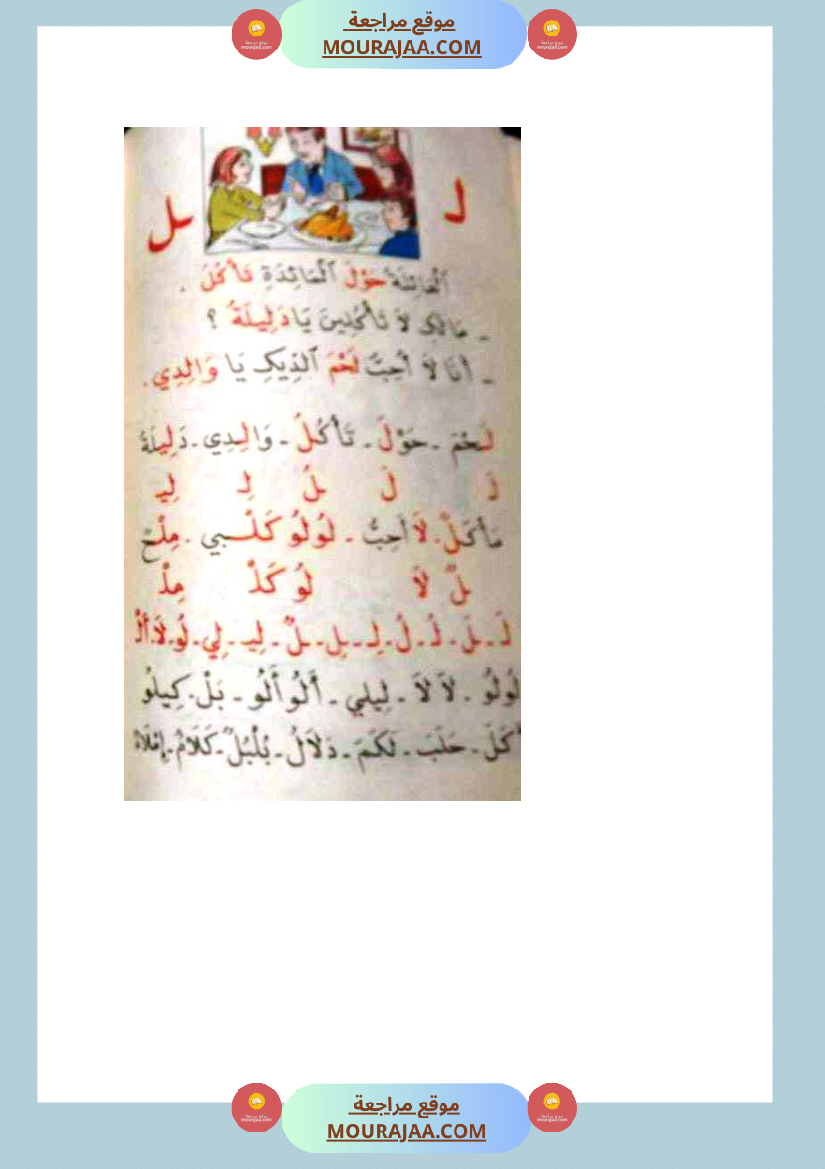 موقع مراجعة
MOURAJAA.COM
لـ ـل
اَلْعَائِلَةُ حَوْلَ اَلْمَائِدَةِ تَأْكُلُ .
ـ مَالَكِ لاَ تَأْكُلِينَ يَا دَلِيلَةُ ؟
ـ أَنَا لاَ أُحِبُّ لَحْمَ اَلدِّيكِ يَا وَالِدِي .
لَحْمَ ـ حَوْلَ ـ تَأْكُلُ ـ وَالِدِي ـ دَلِيلَةُ
لَـ لَ ـلُ لِـ لِيـ
مَأْكَلٌ ـ لاَ أُحِبُّ ـ لُولُو كَلْـبِي ـ مِلْحٌ
ـلٌ لاَ لُو كَلْ مِلْ
لَـ ـ ـلَ ـ لُـ ـ لُ ـ لِـ ـ ـلِ ـ ـلٌ ـ لِيـ ـ لِي ـ لُو ـ لاَ ـ أَلْ
لُولُو ـ لاَ لاَ ـ لِيلِي ـ أَلُو أَلُو ـ بَلْ ـ كِيلُو
كَلَ ـ حَلَبَ ـ لَكَمَ ـ دَلاَلُ ـ بُلْبُلٌ ـ كَلاَمٌ ـ إِمْلاَءٌ
موقع مراجعة
MOURAJAA.COM